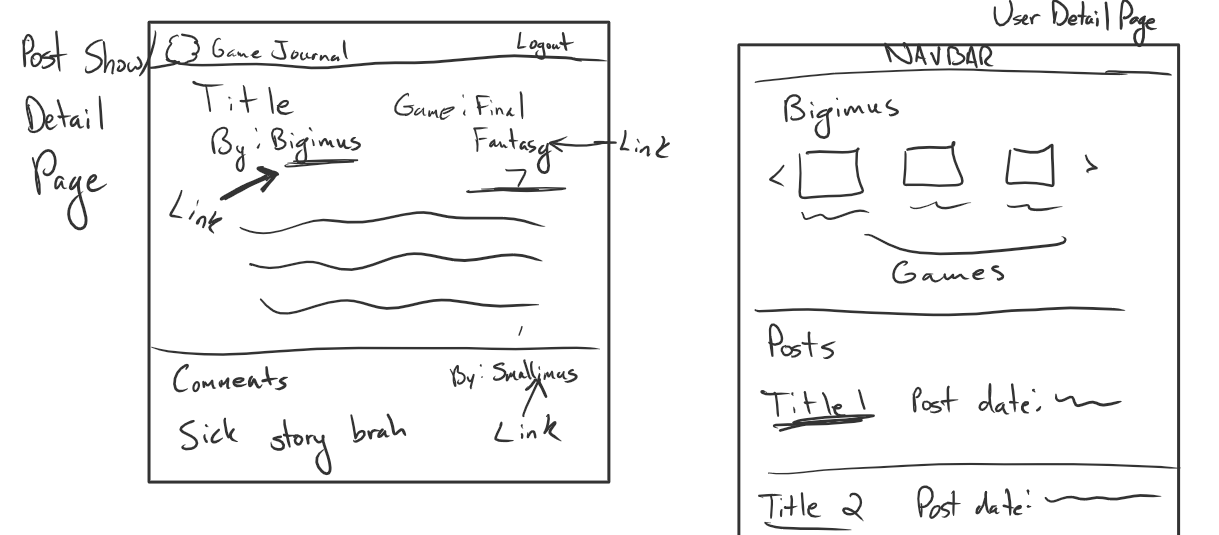 Post Show/
Detail
Page
Game Journal
Logout
Title
By: Bigimus
Game: Final
Fantasy
7
Link
Link
Comments
By: Smallimus
Sick story brah
Link
User Detail Page
NAVBAR
Bigimus
< >
Games
Posts
Title 1 Post date:
Title 2 Post date: